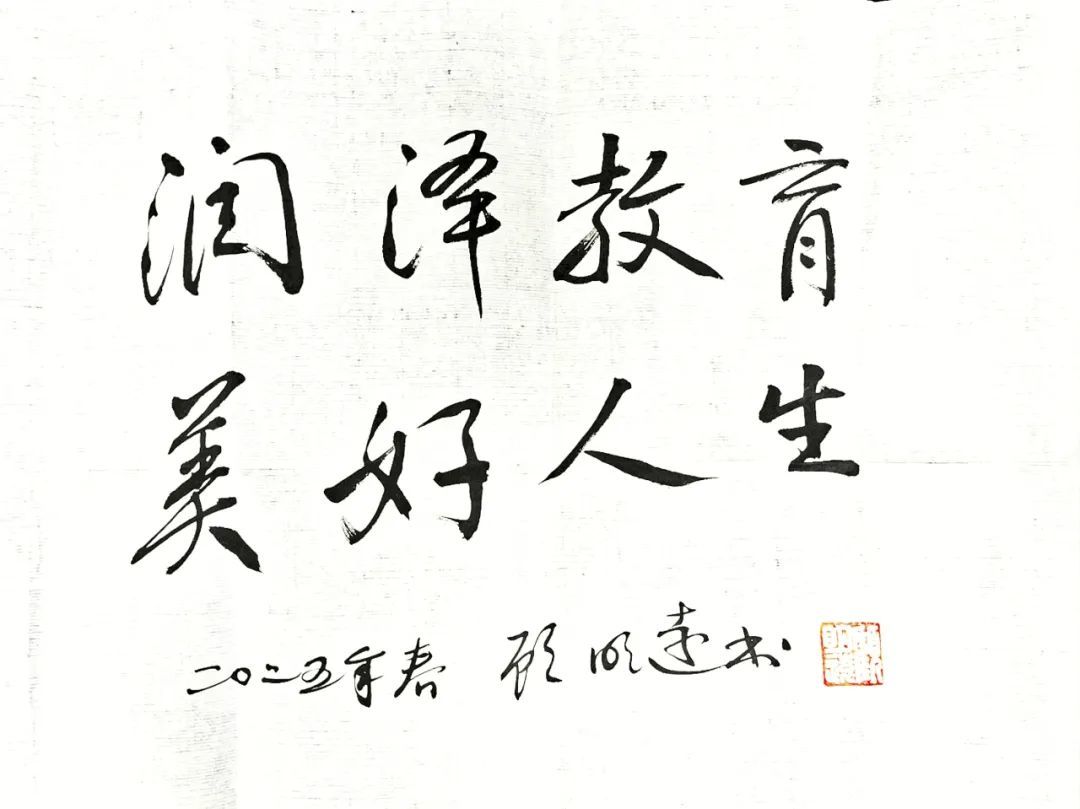 润泽教育
美好人生
二〇二五年春 顾明远书